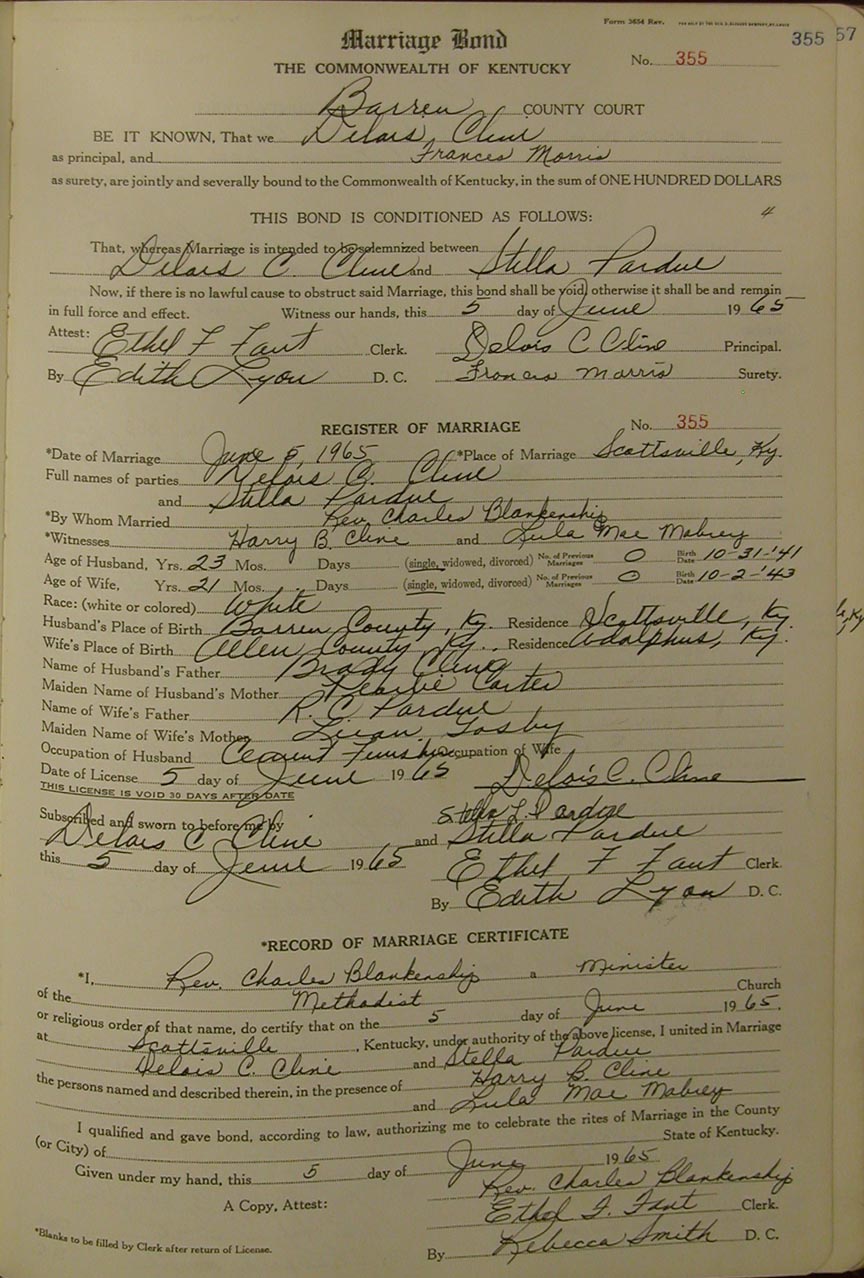 Form 3654 Rev.
355 57
Marriage Bond
No. 355
THE COMMONWEALTH OF KENTUCKY
Barren COUNTY COURT
BE IT KNOWN, That we Delois Cline
as principal, and Frances Morris
as surety, are jointly and severally bound to the Commonwealth of Kentucky, in the sum of ONE HUNDRED DOLLARS
THIS BOND IS CONDITIONED AS FOLLOWS:
That, whereas Marriage is intended to be solemnized between
Delois C. Cline and Stella Pardue
Now, if there is no lawful cause to obstruct said Marriage, this bond shall be void, otherwise it shall be and remain
in full force and effect. Witness our hands, this 5 day of June 1965
Attest: Ethel F Fant Clerk. Delois C Cline Principal.
By Edith Lyon D. C. Francis Morris Surety.
REGISTER OF MARRIAGE No. 355
*Date of Marriage June 5, 1965 *Place of Marriage Scottsville, Ky.
Full names of parties Delois C. Cline
and Stella Pardue
*By Whom Married Rev. Charles Blankenship
*Witnesses Harry B. Cline and Lula Mae Mabrey
Age of Husband, Yrs. 23 Mos. Days (single, widowed, divorced) No. of Previous Marriages 0 Birth Date 10-31-'41
Age of Wife, Yrs. 21 Mos. Days (single, widowed, divorced) No. of Previous Marriages 0 Birth Date 10-2-'43
Race: (white or colored) White
Husband's Place of Birth Barren County, Ky. Residence Scottsville, Ky.
Wife's Place of Birth Allen County, Ky. Residence Adolphus, Ky.
Name of Husband's Father Brady Cline
Maiden Name of Husband's Mother Pearlie Carter
Name of Wife's Father R. C. Pardue
Maiden Name of Wife's Mother Luan Gosby
Occupation of Husband Cement Finisher Occupation of Wife
Date of License 5 day of June 1965 Delois C. Cline
THIS LICENSE IS VOID 30 DAYS AFTER DATE
Stella L. Pardue
Subscribed and sworn to before me by
Delois C Cline and Stella Pardue
this 5 day of June 1965 Ethel F Fant Clerk.
By Edith Lyon D. C.
*RECORD OF MARRIAGE CERTIFICATE
*I, Rev. Charles Blankenship a Minister
of the Methodist Church
or religious order of that name, do certify that on the 5 day of June 1965,
at Scottsville, Kentucky, under authority of the above license, I united in Marriage
Delois C. Cline and Stella Pardue
the persons named and described therein, in the presence of Harry B. Cline
and Lula Mae Mabrey
I qualified and gave bond, according to law, authorizing me to celebrate the rites of Marriage in the County
(or City) of State of Kentucky.
Given under my hand, this 5 day of June 1965
Rev. Charles Blankenship
A Copy, Attest: Ethel F. Fant Clerk.
By Rebecca Smith D. C.
*Blanks to be filled by Clerk after return of License.